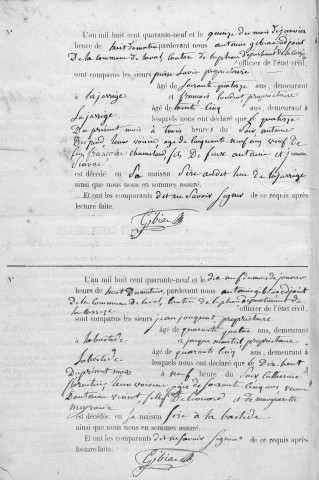 N°
L'an mil huit cent quarante-neuf et le quinze du mois de janvier
heure de huit du matin pardevant nous antoine gibiac adjoint
De la commune de laval, canton de lapleau, département de la corrèze
officier de l'état civil,
sont comparus les sieurs pierre propriétaire
âgé de soixante-quatorze ans, demeurant
à lajarrige et françois propriétaire
âgé de trente cinq ans, demeurant à
lajarrige lesquels nous ont déclaré que le quatorze
Du présent mois à trois heures du soir antoine
leur voisin âgé de cinquante neuf ans veuf de
françoise fils de feux antoine et jeanne
est décédé en sa maison sise audit lieu de lajarrige
ainsi que nous nous en sommes assuré.
Et ont les comparants dit ne savoir signer de ce requis après
lecture faite.
Gibiac
N°
L'an mil huit cent quarante-neuf et le dix neuf du mois de janvier
heure de huit du matin, pardevant nous antoine gibiac adjoint
de la commune de laval, canton de lapleau département de
la corrèze officier de l'état civil
sont comparus les sieurs jean propriétaire
âgé de quarante quatre ans, demeurant
à labastide et jacques propriétaire
âgé de quarante cinq ans, demeurant à
labastide lesquels nous ont déclaré que le dix huit
Du présent mois à neuf heure du soir catherine
leur voisine âgée de soixante cinq ans veuve
D'antoine fille de léonard et de marguerite
est décédé en sa maison sise à la bastide
ainsi que nous nous en sommes assuré.
Et ont les comparants dit ne savoir signer de ce requis après
lecture faite.
Gibiac